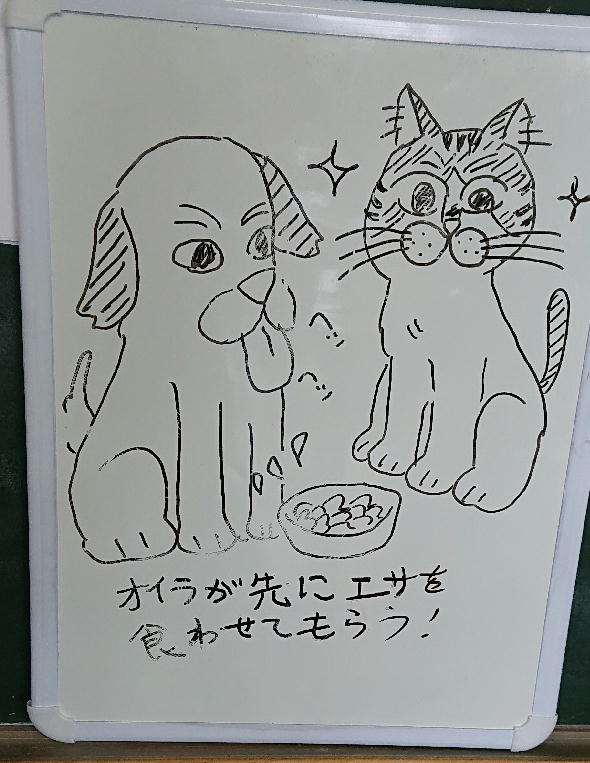 ペ゛
ペ゛
オイラが先にエサを
食わせてもらう!